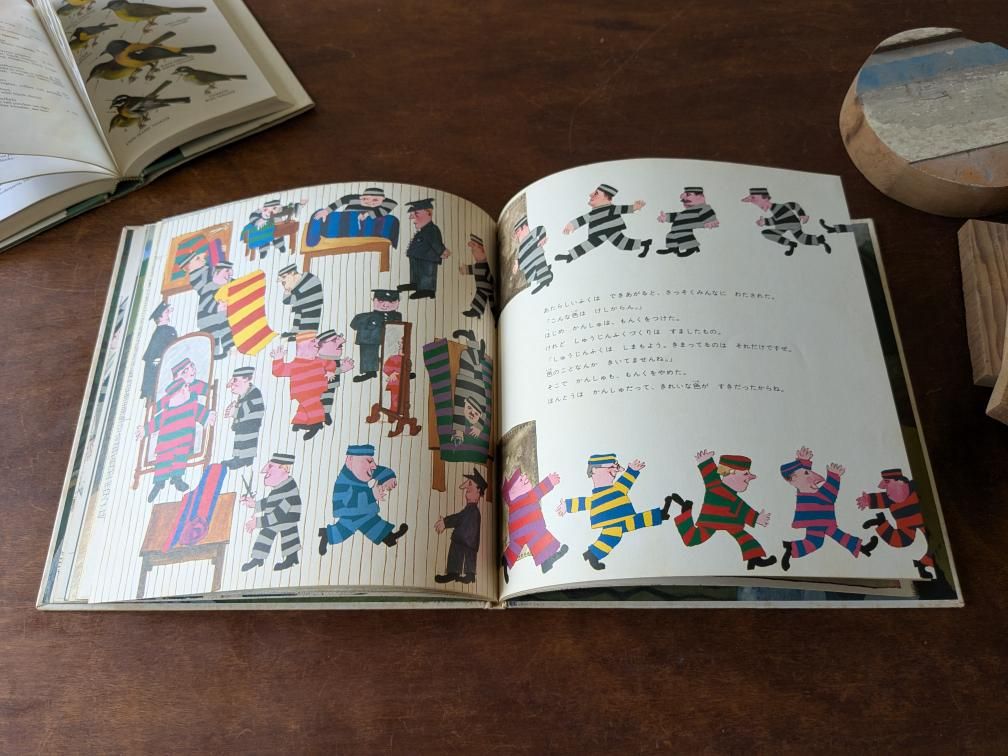 あたらしいふくは　できあがると、さっそくみんなに　わたされた。
「こんな色は　けしからん。」
はじめ　かんしゅは、もんくをつけた。
けれど　しゅうじんふくづくりは　すましたもの。
「しゅうじんふくは　しまもよう。きまってるのは　それだけですぜ。
色のことなんか　きいてませんね。」
そこで　かんしゅも、もんくをやめた。
ほんとうは　かんしゅだって、きれいな色が　すきだったからね。